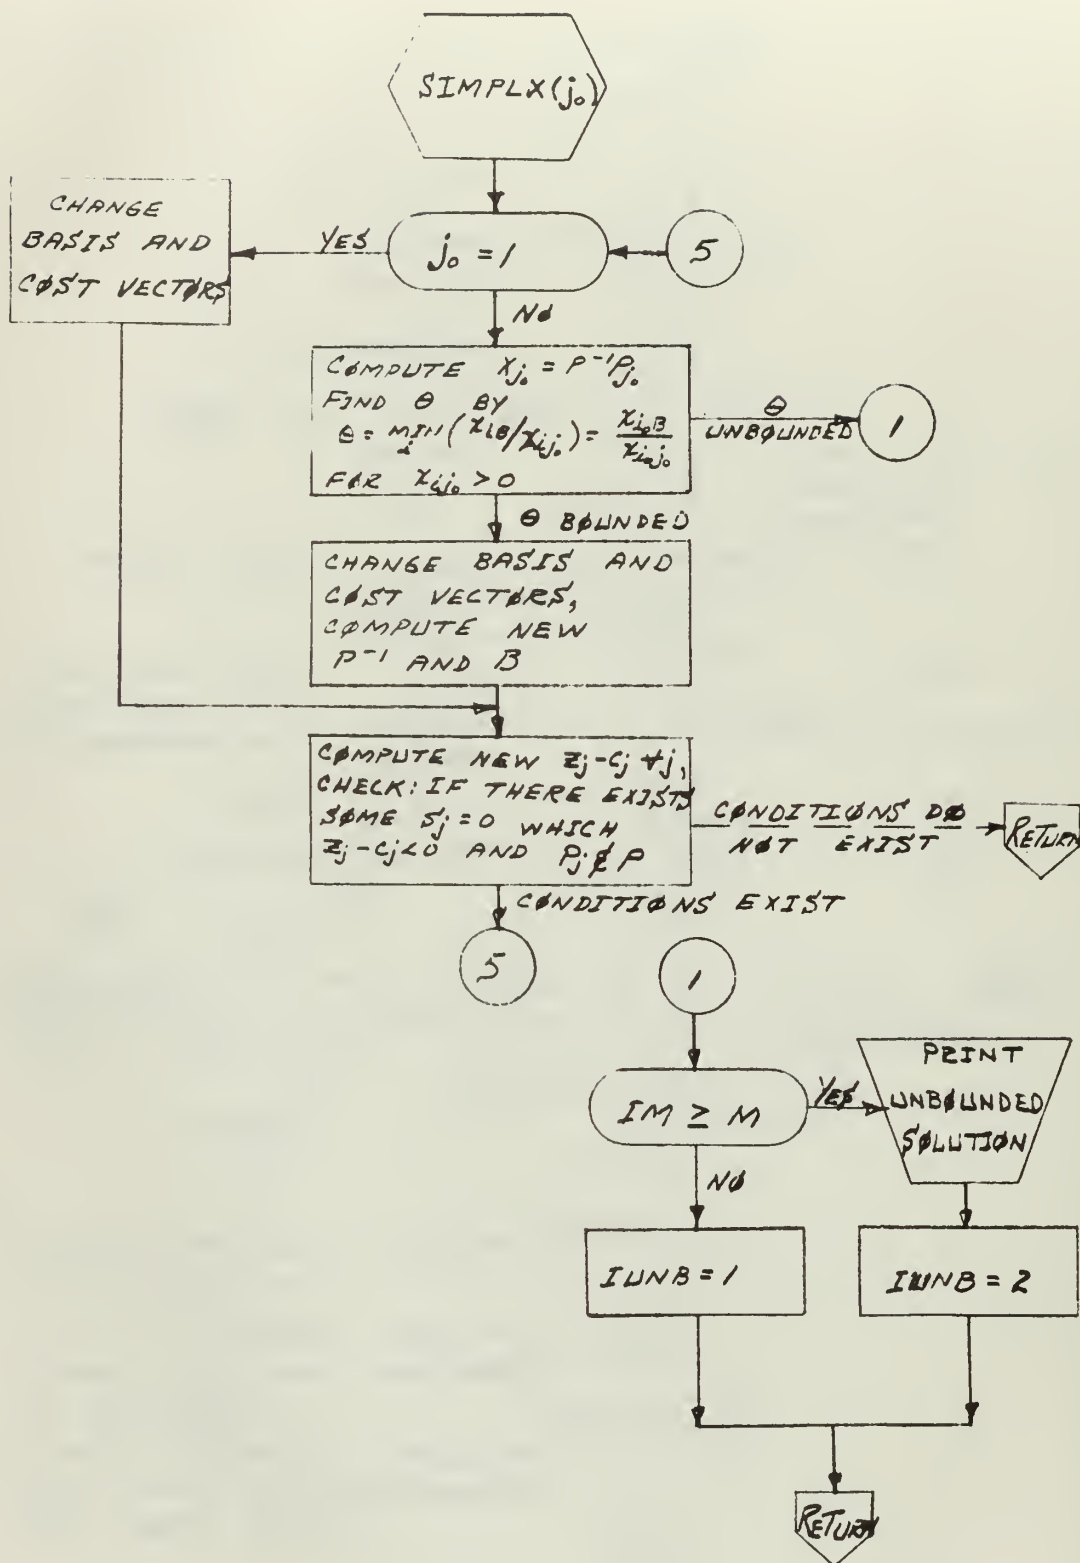 SIMPLX(j₀)
CHANGE
BASIS AND
CØST VECTØRS
YES
j₀ = 1
5
NØ
CØMPUTE X_j₀ = P⁻¹P_j₀
FIND Θ BY
Θ = MIN_i (x_iB/x_ij₀) = x_i₀B/x_i₀j₀
FØR x_ij₀ > 0
Θ
UNBØUNDED
1
Θ BØUNDED
CHANGE BASIS AND
CØST VECTØRS,
CØMPUTE NEW
P⁻¹ AND B
CØMPUTE NEW z_j-c_j ∀j,
CHECK: IF THERE EXISTS
SØME S_j = 0 WHICH
z_j-c_j<0 AND P_j∉P
CØNDITIØNS DØ
NØT EXIST
RETURN
CØNDITIØNS EXIST
5
1
IM ≥ M
YES
PRINT
UNBØUNDED
SØLUTIØN
NØ
IUNB = 1
IUNB = 2
RETURN